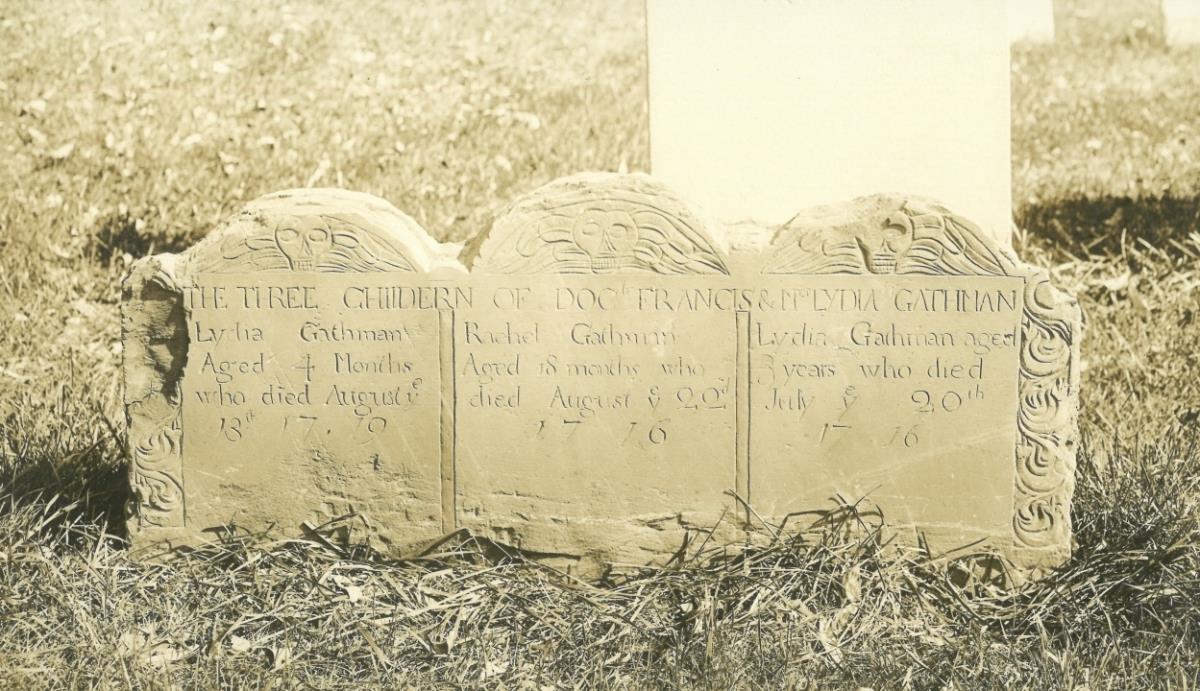 THE THREE CHILDERN OF DOCtr FRANCIS & Mrs LYDIA GATHMAN
Lydia Gathman
Aged 4 Months
who died August ye
13th 17 19
Rachel Gathman
Aged 18 months who
died August ye 22d
17 16
Lydia Gathman aged
3 years who died
July ye 20th
17 16